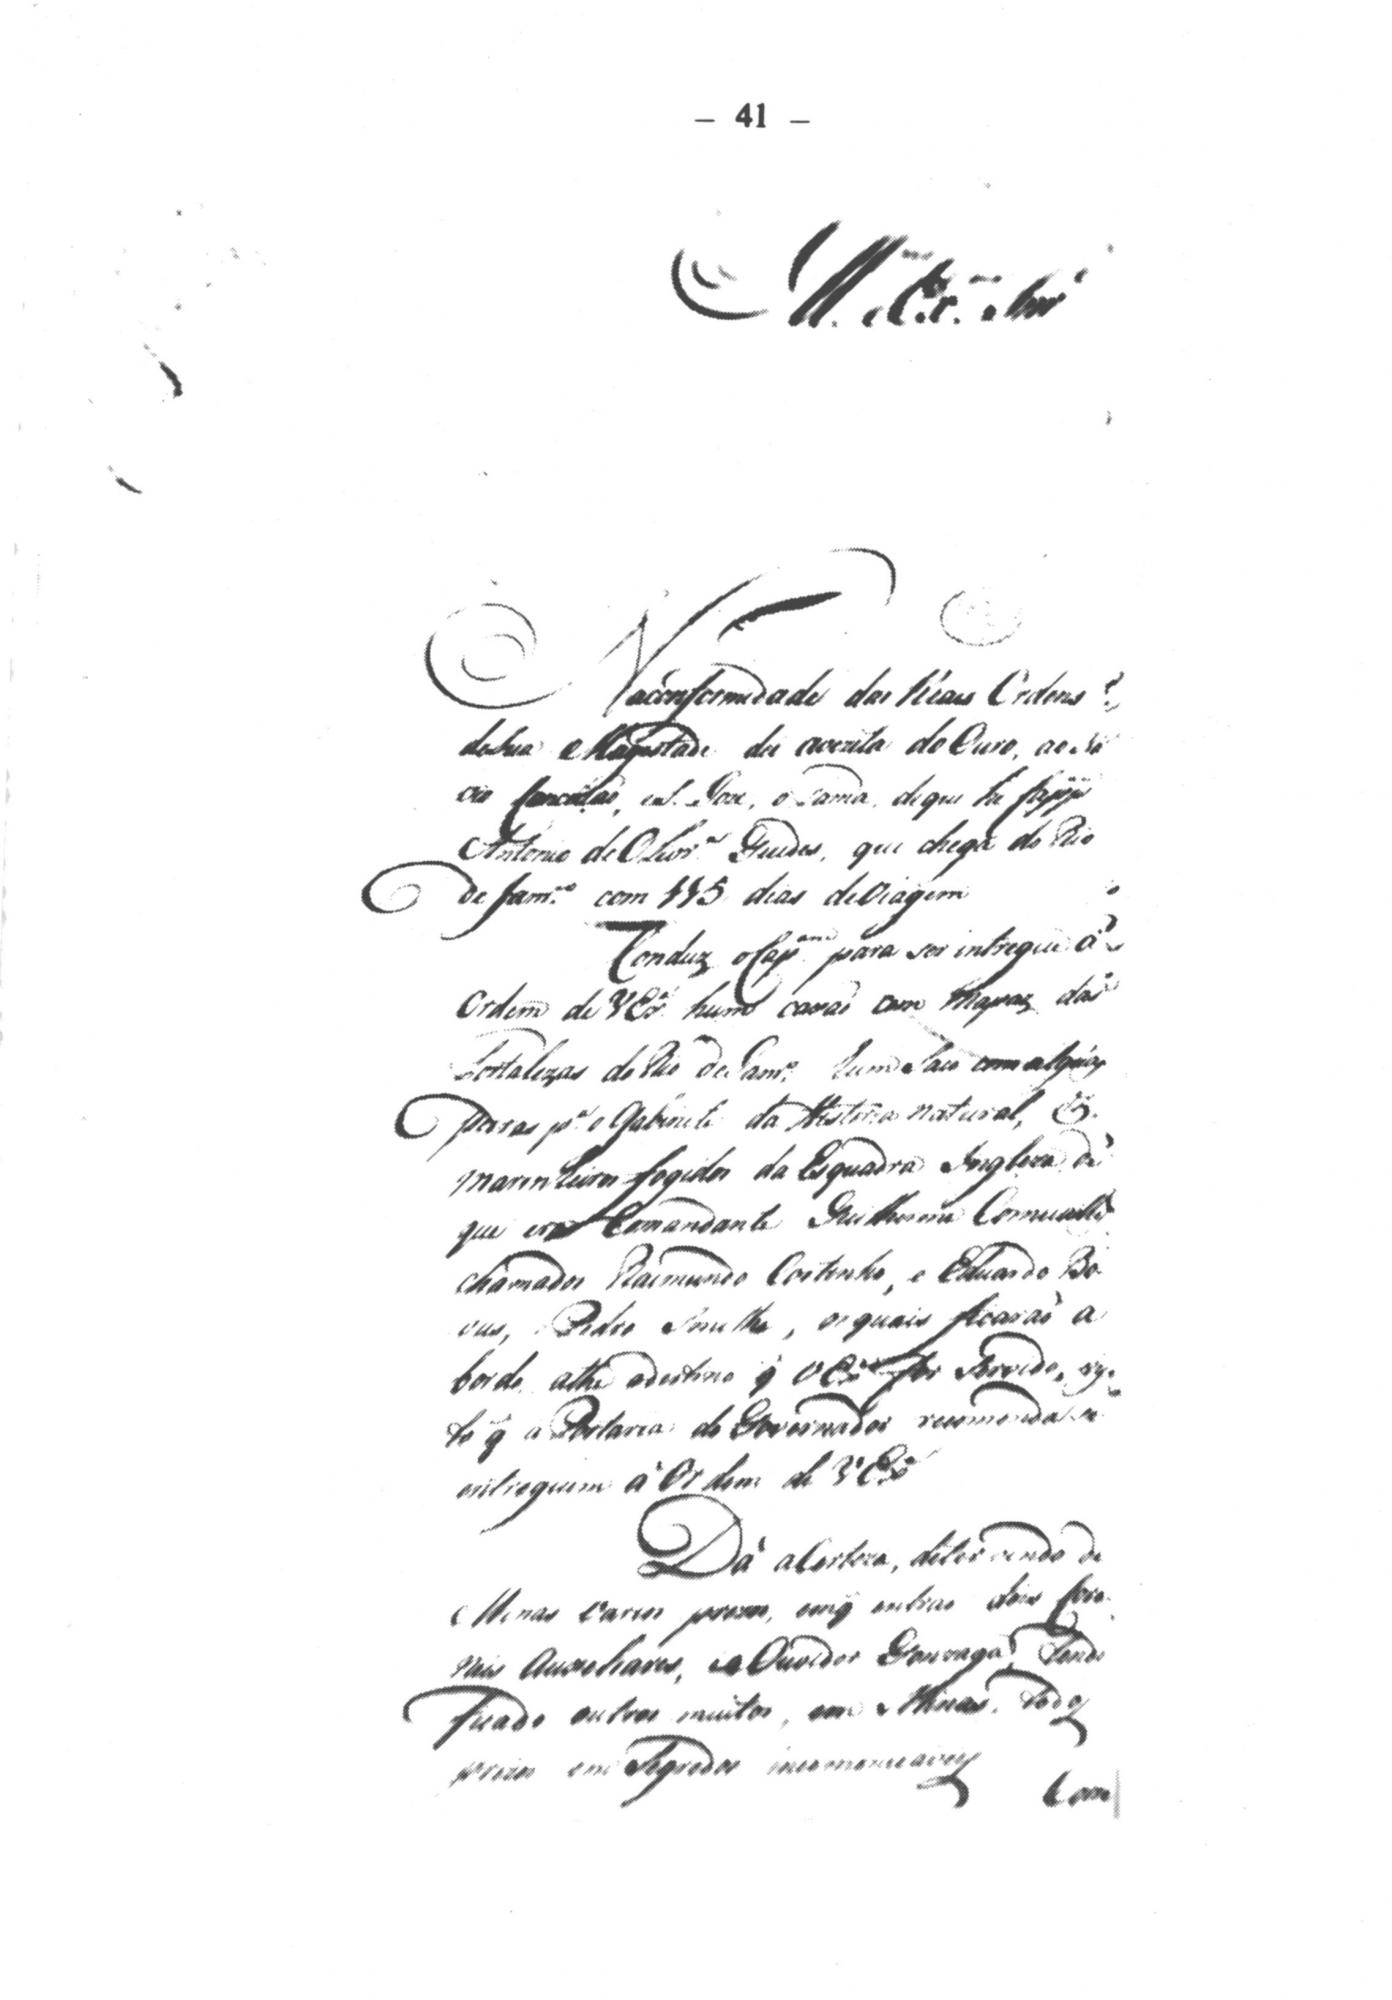 – 41 –
Ill.mo Ex.mo Snr
Na conformidade das Reaes Ordens
de Sua Magestade dei a vezita do Ouro, ao Na
vio S. Joze, o Fama, de que he Capp.
Antonio de Olivr.a Guedes, que chega do Rio
de Janr.o com 115 dias de viagem
Conduz o Cap.am para ser intregue á
ordem de V Ex.a hum caxaõ com Mapaz das
Fortalezas do Rio de Janr.o hum Saco com alguãs
p.a o Gabinete da Historia natural, e 3.
marinheiros fogidos da Esquadra Ingleza de
que era Comandante Guilherme
chamados Raimundo Coitinho, e Eduardo Bo
Pedro Smithe, os quais ficaraõ a
bordo athe o destino q̃ V Ex.a for Servido, vis
to q̃ a Portaria do Governador recomenda se
entreguem á Ordem de V Ex.a
Dá a Certeza, de de
Minas varios prezos, em q̃ entraõ dois Coro
neis Auxeliares, e o Ouvidor Gonzaga, tendo
ficado outros muitos, em Minas, todos
prezos em Segredos incomonicaveis
Com